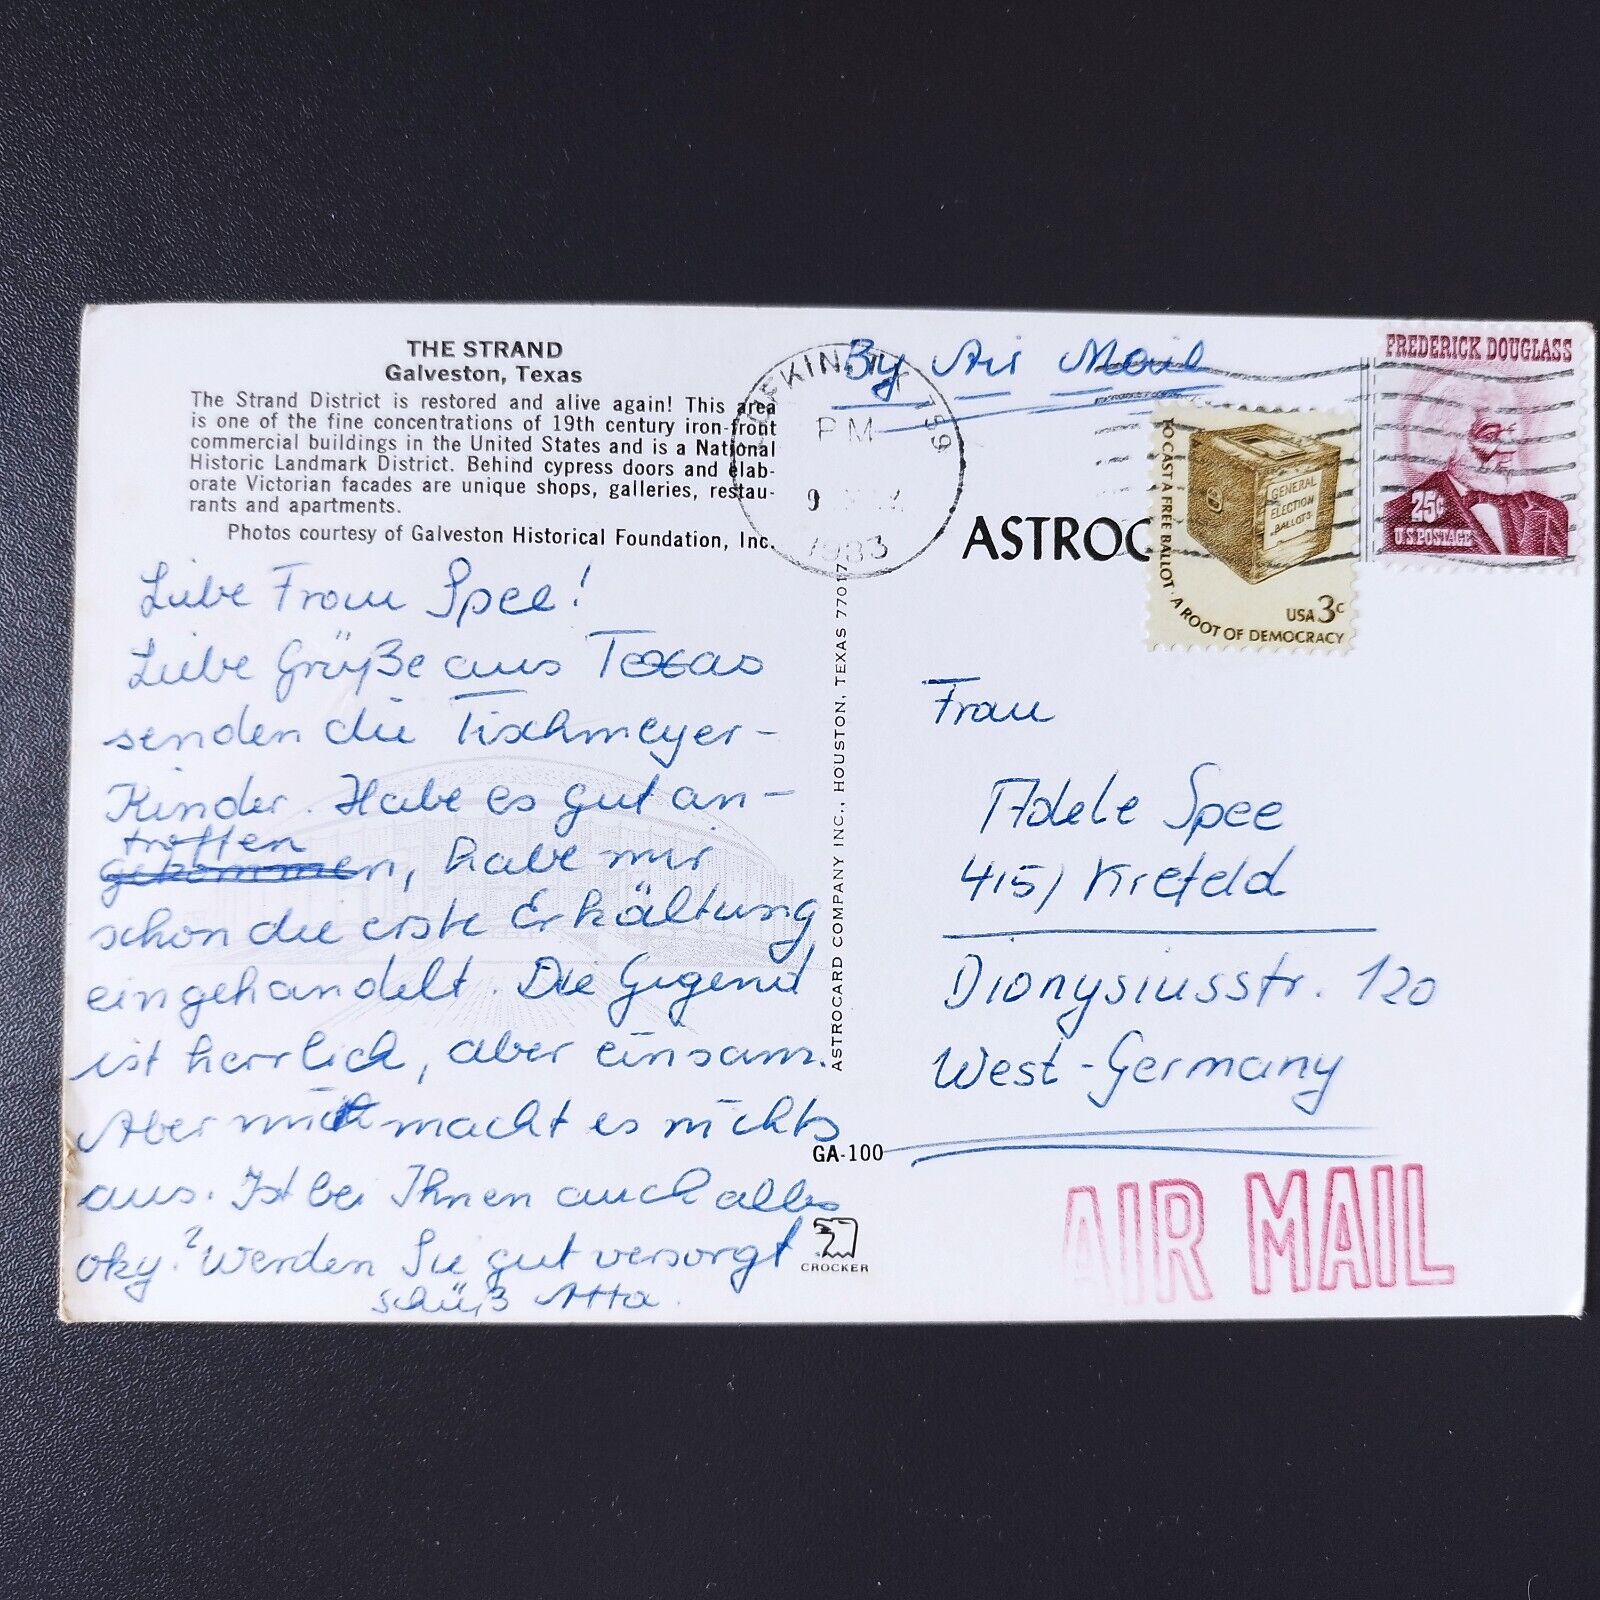 THE STRAND
Galveston, Texas
The Strand District is restored and alive again! This area
is one of the fine concentrations of 19th century iron-front
commercial buildings in the United States and is a National
Historic Landmark District. Behind cypress doors and elab-
orate Victorian facades are unique shops, galleries, restau-
rants and apartments.
Photos courtesy of Galveston Historical Foundation, Inc.
Liebe Frau Spee!
Liebe Grüße aus Texas
senden die Tischmeyer-
Kinder. Habe es gut an-
troffen
gekommen, habe mir
schon die erste Erkältung
eingehandelt. Die Gegend
ist herrlich, aber einsam.
Aber mir macht es nichts
aus. Ist bei Ihnen auch alles
oky.? Werden Sie gut versorgt
ASTROCARD COMPANY INC., HOUSTON, TEXAS 77017
GA-100
CROCKER
By Air Mail
PM
9
1983
ASTROC
TO CAST A FREE BALLOT · A ROOT OF DEMOCRACY
GENERAL
ELECTION
BALLOTS
USA 3c
FREDERICK DOUGLASS
25c
U.S. POSTAGE
Frau
Adele Spee
415) Krefeld
Dionysiusstr. 120
West-Germany
AIR MAIL